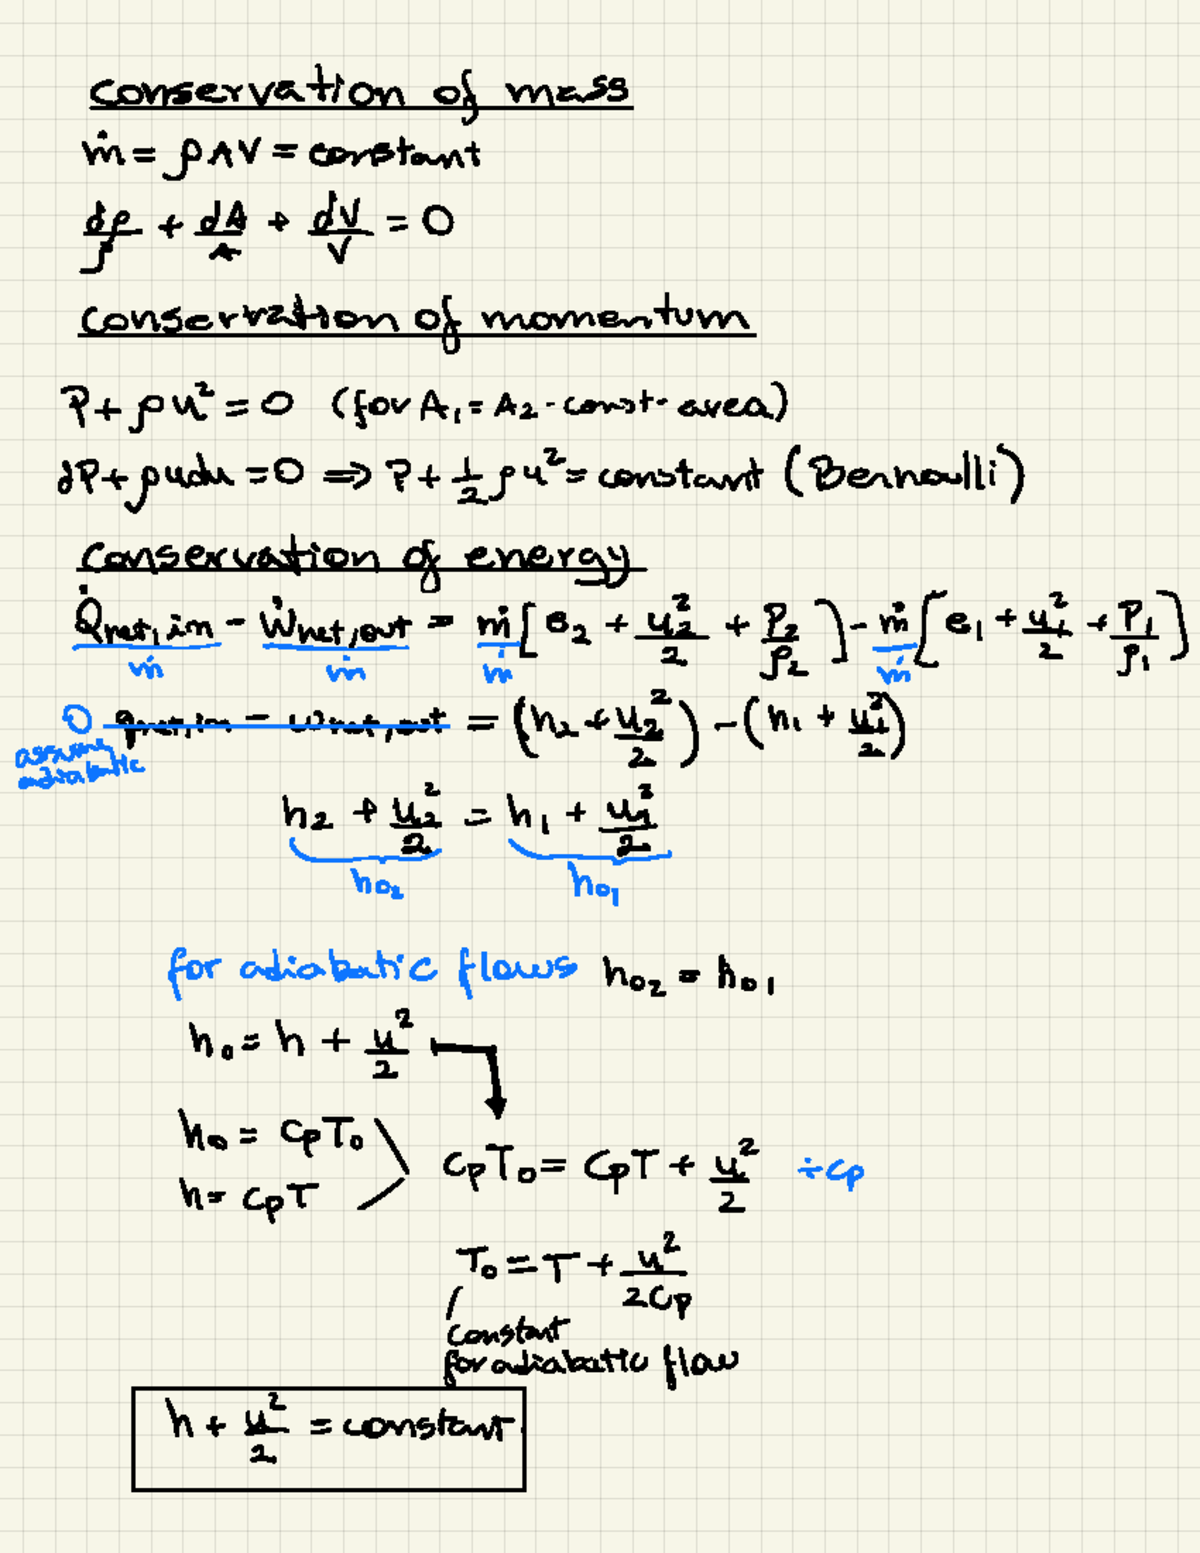 conservation of mass
ṁ = ρAV = constant
dρ/ρ + dA/A + dV/V = 0
conservation of momentum
P + ρu² = 0 (for A₁ = A₂ - const. area)
dP + ρudu = 0 ⟹ P + 1/2 ρu² = constant (Bernoulli)
conservation of energy
Q̇net,in/ṁ - Ẇnet,out/ṁ = ṁ/ṁ [e₂ + u₂²/2 + P₂/ρ₂] - ṁ/ṁ [e₁ + u₁²/2 + P₁/ρ₁]
0 qnet,in - wnet,out = (h₂ + u₂²/2) - (h₁ + u₁²/2)
assume
adiabatic
h₂ + u₂²/2 = h₁ + u₁²/2
h₀₂ h₀₁
for adiabatic flows h₀₂ = h₀₁
h₀ = h + u²/2
h₀ = cpT₀
h = cpT
cpT₀ = cpT + u²/2 ÷cp
T₀ = T + u²/2cp
constant
for adiabatic flow
h + u²/2 = constant